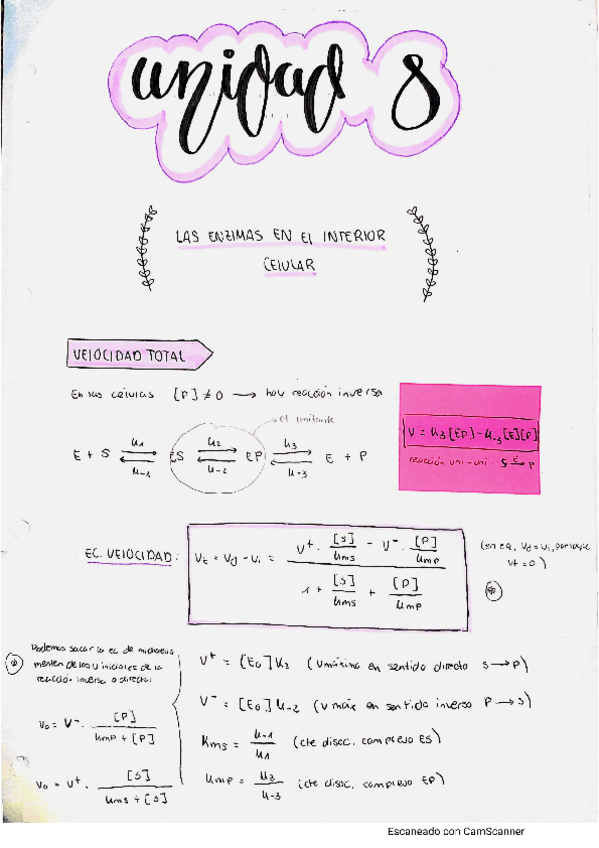 unidad 8
LAS ENZIMAS EN El INTERIOR
CELULAR
VELOCIDAD TOTAL
En las células [P] ≠ 0 → hay reacción inversa
et limitante
E + S ⇌ ES ⇌ EP ⇌ E + P
k1 k2 k3
k-1 k-2 k-3
V = k3[EP] - k-3[E][P]
reacción uni-uni S ⇌ P
EC. VELOCIDAD: Vt = Vd - Vi = (V+ · [S]/kms - V- · [P]/kmp) / (1 + [S]/kms + [P]/kmp)
(en eq, Vd = Vi, por lo que
Vt = 0)
Podemos sacar la ec de michaelis
menten de las V iniciales de la
reacción inversa o directa:
V0 = V- · [P] / (kmp + [P])
V0 = V+ · [S] / (kms + [S])
V+ = [E0] k2 (Vmáxima en sentido directo S → P)
V- = [E0] k-2 (V max en sentido inverso P → S)
Kms = k-1 / k1 (cte disoc. complejo ES)
kmp = k3 / k-3 (cte disoc. complejo EP)
Escaneado con CamScanner